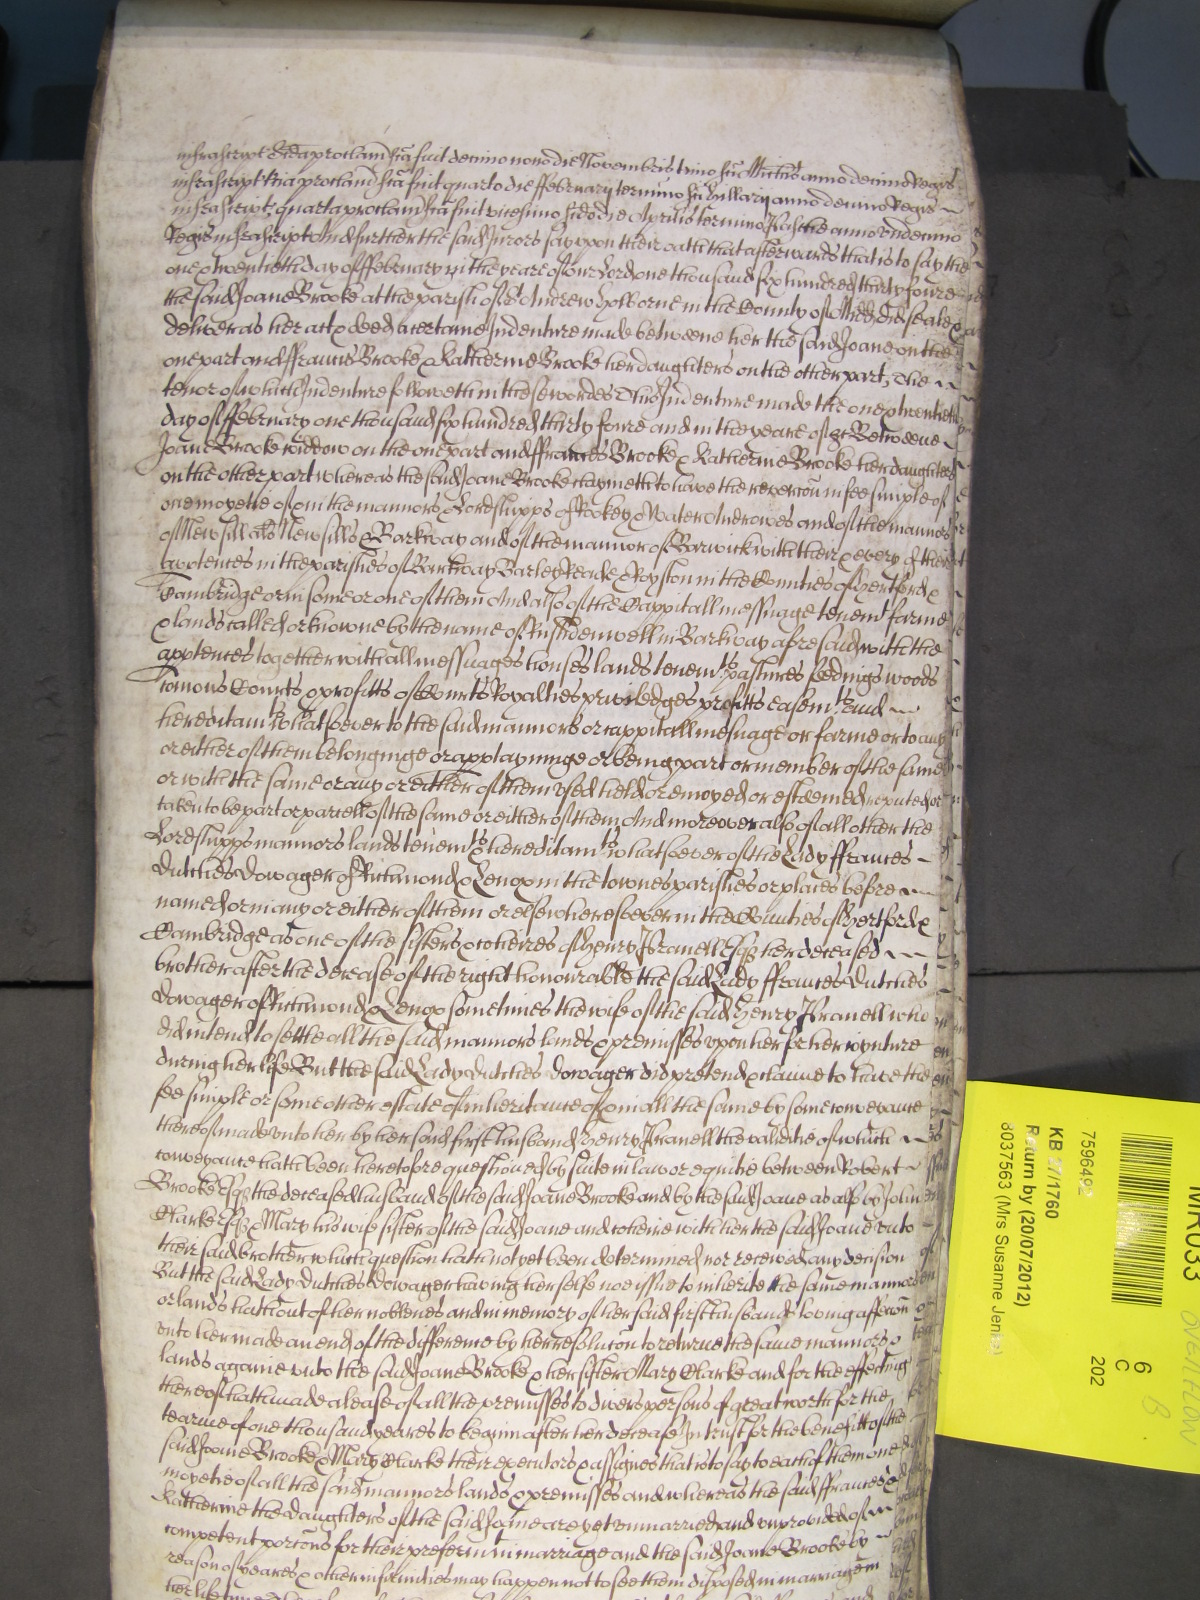 infrascript Scda proclam fca fuit decimo nono die Novembris termino sci Michis anno decimo Regis
infrascript tcia proclam fca fuit quarto die ffebruary termino sci Hillarij anno decimo Regis
infrascript quarta proclam fca fuit vicesimo sedo die Aprilis termino Pasche anno undecimo
Regis infrascript And further the said Jurors say upon their oath that afterwards that is to say the
one & twentieth day of ffebruary in the yeare of our Lord one thousand six hundred thirty foure
the said Joane Brooke at the parish of St Andrew Holborne in the County of Midd did seale &
deliver as her act & deed a certaine Indenture made betweene her the said Joane on the
one part and ffrances Brooke & Katherine Brooke her daughters on the other part, The
tenor of which Indenture followeth in these wordes This Indenture made the one & twentieth
day of ffebruary one thousand six hundred thirty foure and in the yeare of Betweene
Joane Brooke widdow on the one part and ffrances Brooke & Katherine Brooke her daughters
on the other part whereas the said Joane Brooke claymeth to have the revercon in fee simple of
one moyetie of & in the mannors & Lordshipps of Cokey & Water Andrewes and of the mannor
of Newsill als Newsills & Barkway and of the mannor of Barwick with their & every of their
apptences in the parishes of Barkway Barley Reade & Royston in the Counties of Hertford &
Cambridge or in some or one of them And also of the Cappitall messuage tenemt farme
& lands called or knowne by the name of Rushdenwell in Barkway aforesaid with the
apptences together with all messuages houses lands tenemts pastures fedings woods
comons Courts & profitts of Courts Royalties priviledges profitts easemts and
hereditamts whatsoever to the said mannors or cappitall mesuage or farme or to any
or either of them belonginge or apptayninge or being part or member of the same
or with the same or any or either of them used held or enioyed or esteemed reputed or
taken to be part or parcell of the same or either of them, And moreover also of all other the
Lordshipps mannors lands tenemts & hereditamts whatsoever of the Lady ffrances
Dutches Dowager of Richmond & Lenox in the townes parishes or places before
named or in any or either of them or elsewhere soever in the Counties of Hertford &
Cambridge as one of the sisters & coheires of Henry Pranell Esqr her deceased
brother after the decease of the right honourable the said Lady ffrances Dutches
Dowager of Richmond & Lenox sometimes the wife of the said Henry Pranell who
did intend to settle all the said mannors lands & premisses upon her for her ioynture
during her life But the said Lady Dutches Dowager did pretend & claime to have the
fee simple or some other estate of inheritance of & in all the same by some conveyance
thereof made unto her by her said first husband Henry Pranell the validitie of which
conveyance hath been heretofore questioned by suite in law or equitie between Robert
Brooke Esqr the deceased husband of the said Joane Brooke and by the said Joane as alsoe by John
Clarke Esqr & Mary his wife sister of the said Joane and coheire with her the said Joane unto
their said brother which question hath not yet been determined nor received any decision
But the said Lady Dutches Dowager having her selfe noe issue to inherite the same mannors
or lands hath out of her noblenes and in memory of her said first husbands loving affeccon
unto her made an end of the difference by her resolucon to returne the same mannors &
lands againe unto the said Joane Brooke & her sister Mary Clarke and for the effecting
thereof hath made a lease of all the premisses to divers persons of great worth for the
tearme of one thousand yeares to begin after her decease In trust for the benefitt of the
said Joane Brooke & Mary Clarke their executors & assignes that is to say to each of them one
moyetie of all the said mannors lands & premisses and whereas the said ffrances &
Katherine the daughters of the said Joane are yet unmarried and unprovided of
competent porcons for their preferm in marriage and the said Joane Brooke by
reason of yeares & other infirmities may happen not to see them disposed in marriage in
her life time
MR033
6
C
202
7596492
KB 27/1760
Return by (20/07/2012)
8037563 (Mrs Susanne Jen